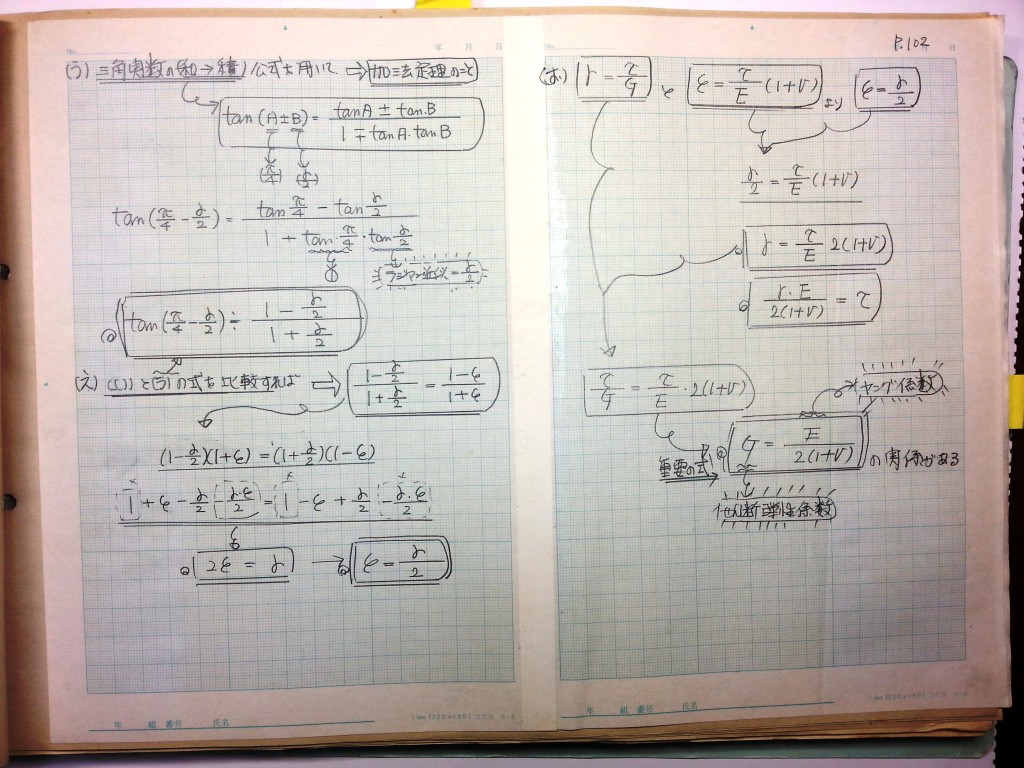 年 月 日
(う) 三角関数の(和→積)公式を用いて ⇒ 加法定理のこと
tan(A±B) = (tanA ± tanB)/(1 ∓ tanA・tanB)
(π/4) (γ/2)
tan(π/4 - γ/2) = (tan π/4 - tan γ/2)/(1 + tan π/4・tan γ/2)
ラジアン近似 = γ/2
tan(π/4 - γ/2) ≒ (1 - γ/2)/(1 + γ/2)
(え) (い)と(う)の式を比較すれば ⇒ (1 - γ/2)/(1 + γ/2) = (1 - ε)/(1 + ε)
(1 - γ/2)(1 + ε) = (1 + γ/2)(1 - ε)
1 + ε - γ/2 - γ・ε/2 = 1 - ε + γ/2 - γ・ε/2
2ε = γ → ε = γ/2
年 組 番号 氏名
P.102
日
(お) γ = τ/G と ε = τ/E (1+ν) より ε = γ/2
γ/2 = τ/E (1+ν)
γ = τ/E 2(1+ν)
γ・E/2(1+ν) = τ
τ/G = τ/E・2(1+ν)
ヤング係数
重要の式 G = E/2(1+ν) の関係がある
せん断弾性係数
年 組 番号 氏名